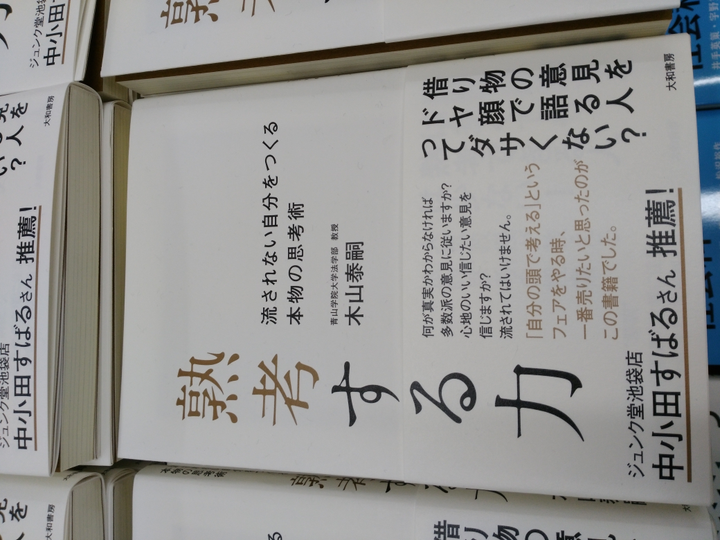 熟考する力
流されない自分をつくる
本物の思考術
青山学院大学法学部 教授
木山泰嗣
借り物の意見を
ドヤ顔で語る人
ってダサくない?
何が真実かわからなければ
多数派の意見に従いますか?
心地のいい信じたい意見を
信じますか?
流されてはいけません。
「自分の頭で考える」という
フェアをやる時、
一番売りたいと思ったのが
この書籍でした。
ジュンク堂池袋店
中小田すばるさん 推薦!
大和書房
ジュンク堂池袋店
中小田すばる
大和書房
中小田すばるさん 推薦!
大和書房
本物の思考術